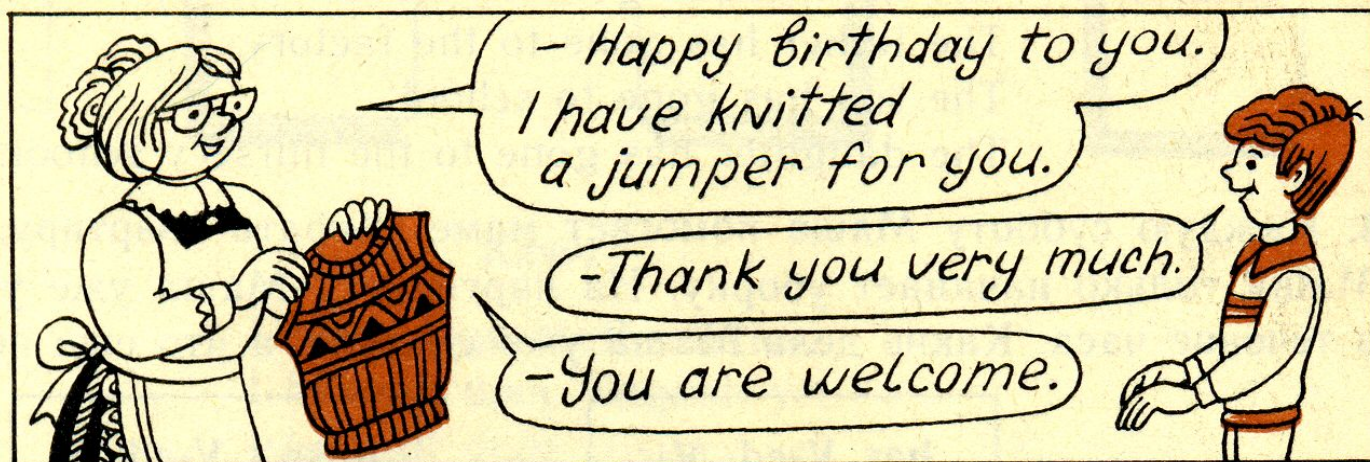 - Happy birthday to you.
I have knitted
a jumper for you.
-Thank you very much.
-You are welcome.